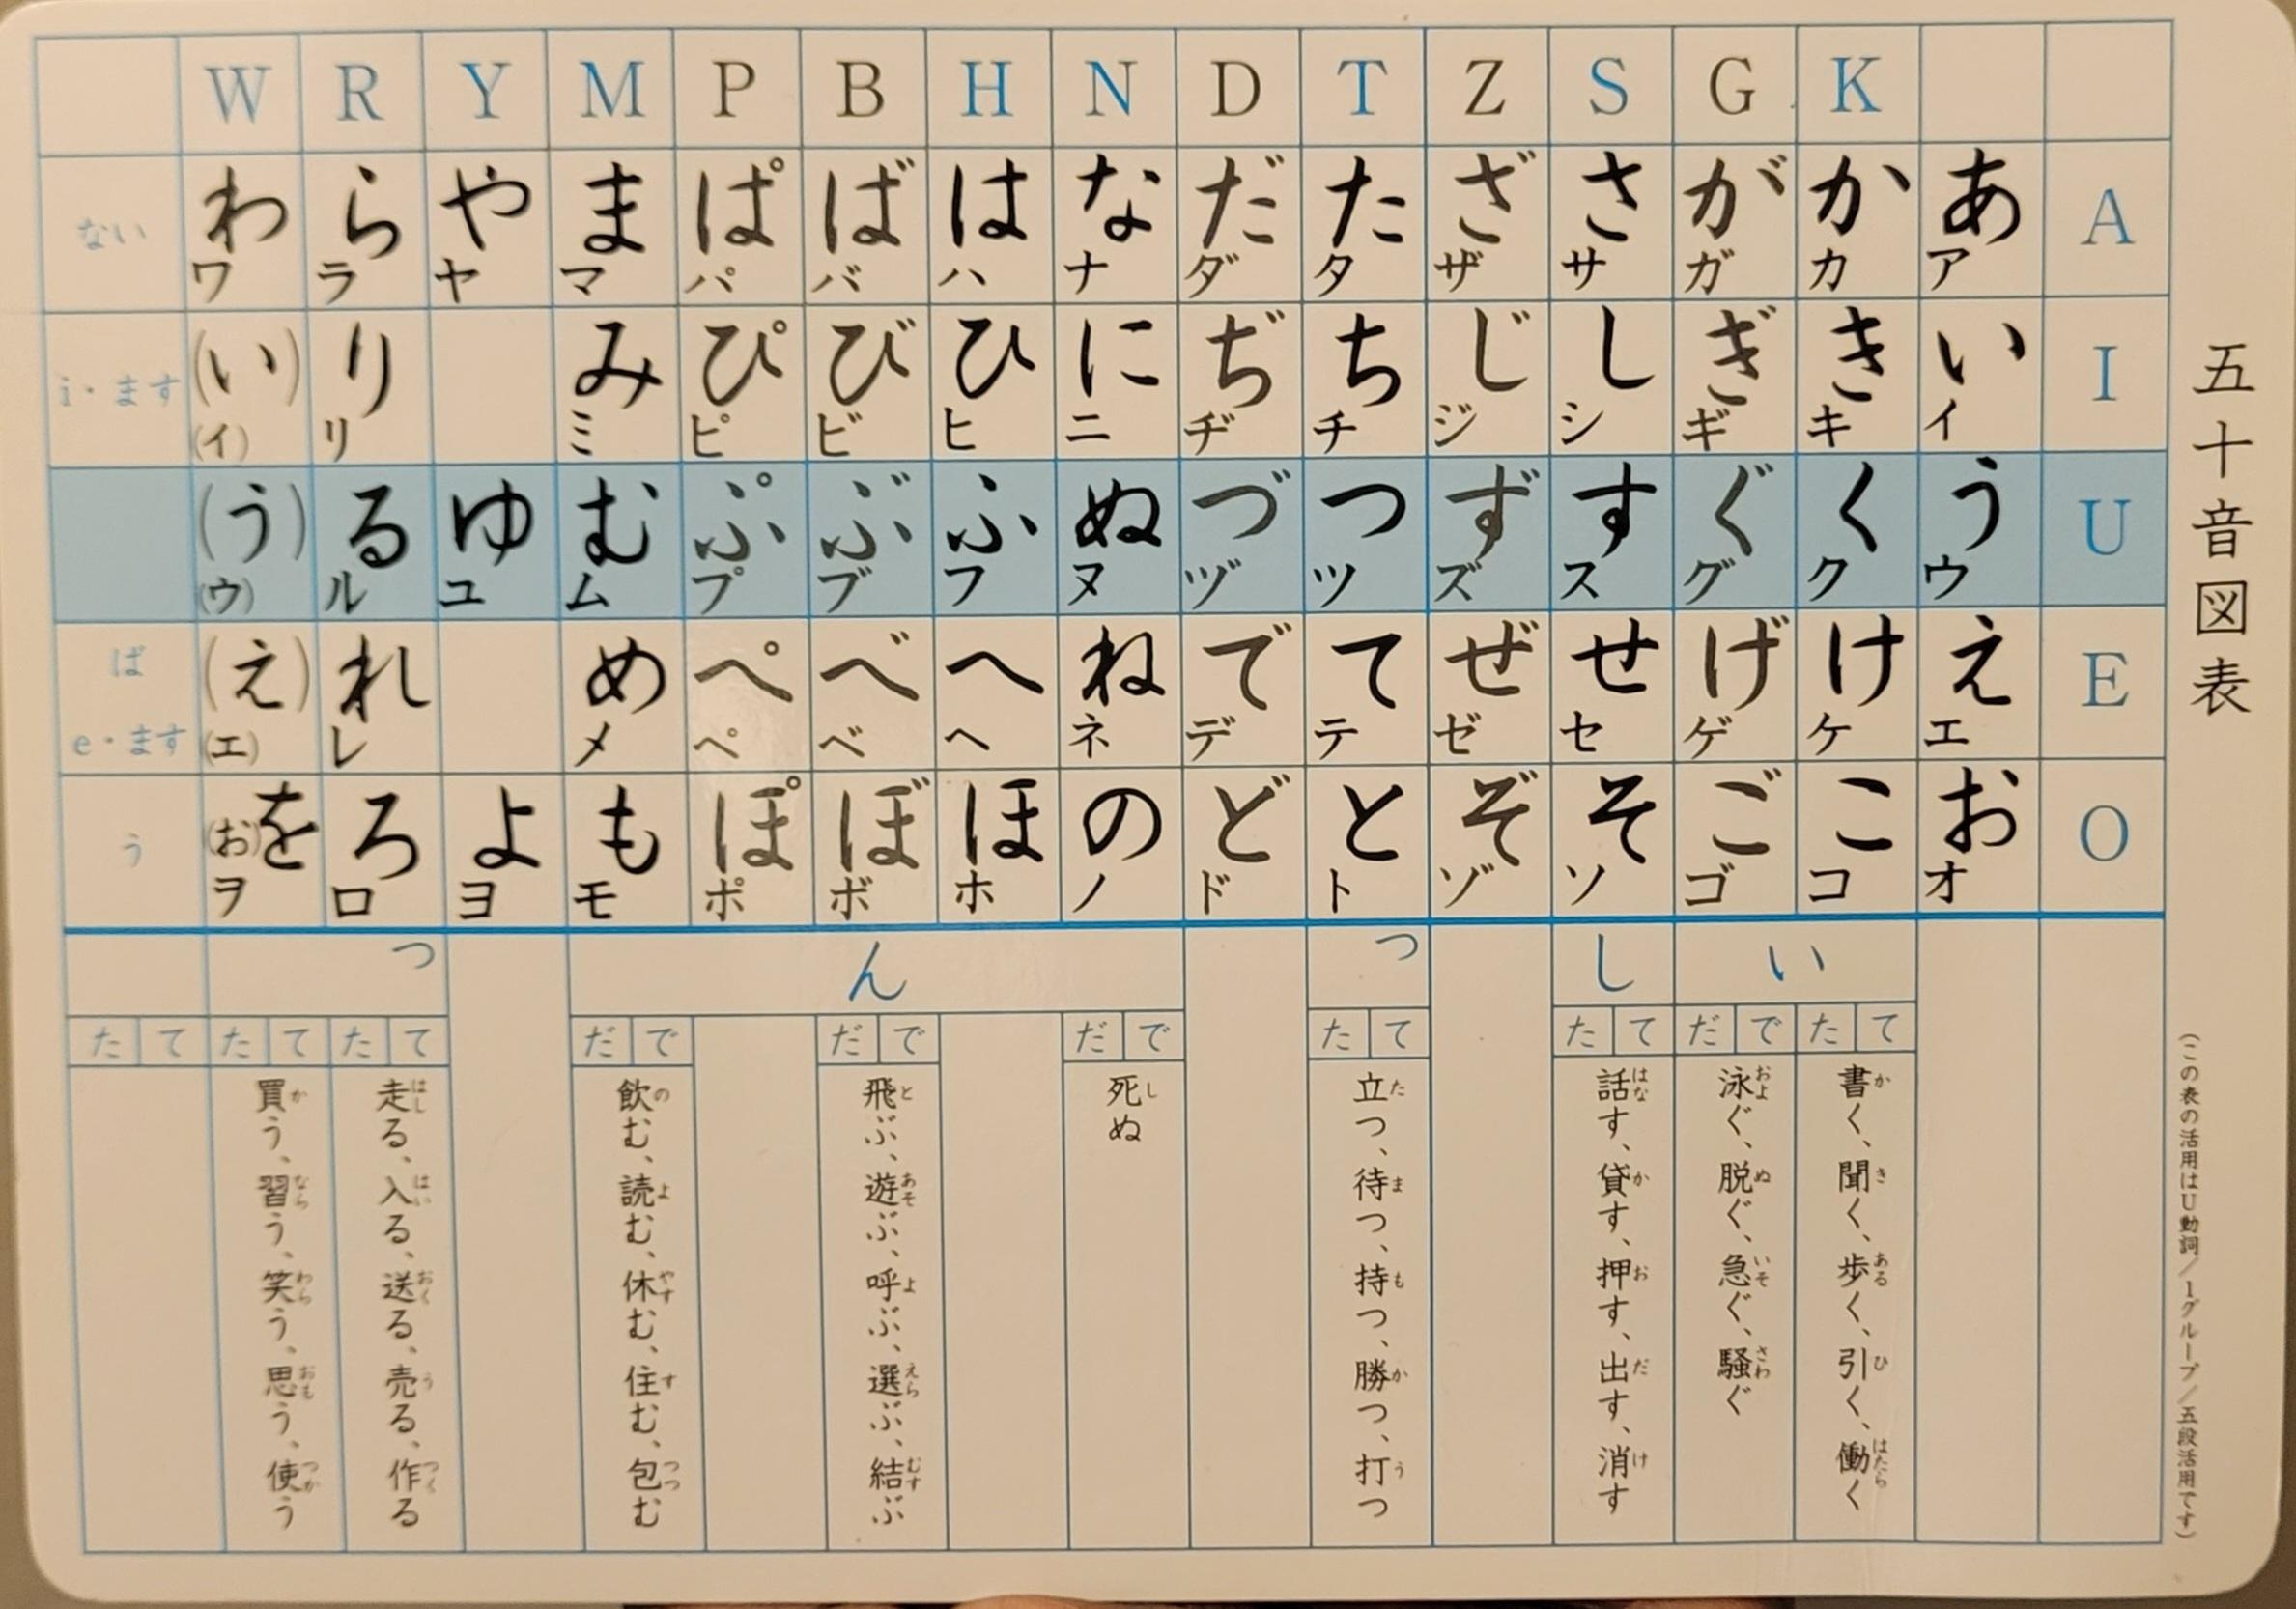 五十音図表
W R Y M P B H N D T Z S G K
ない わ ら や ま ぱ ば は な だ た ざ さ が か あ A
ワ ラ ヤ マ パ バ ハ ナ ダ タ ザ サ ガ カ ア
i・ます (い) り み ぴ び ひ に ぢ ち じ し ぎ き い I
(イ) リ ミ ピ ビ ヒ ニ ヂ チ ジ シ ギ キ イ
(う) る ゆ む ぷ ぶ ふ ぬ づ つ ず す ぐ く う U
(ウ) ル ユ ム プ ブ フ ヌ ヅ ツ ズ ス グ ク ウ
ば (え) れ め ぺ べ へ ね で て ぜ せ げ け え E
e・ます (エ) レ メ ペ ベ ヘ ネ デ テ ゼ セ ゲ ケ エ
う (お)を ろ よ も ぽ ぼ ほ の ど と ぞ そ ご こ お O
ヲ ロ ヨ モ ポ ボ ホ ノ ド ト ゾ ソ ゴ コ オ
っ ん っ し い
た て た て た て だ で だ で だ で た て た て だ で た て
書く、聞く、歩く、引く、働く
か き ある ひ はたら
泳ぐ、脱ぐ、急ぐ、騒ぐ
およ ぬ いそ さわ
話す、貸す、押す、出す、消す
はな か お だ け
立つ、待つ、持つ、勝つ、打つ
た ま も か う
死ぬ
し
飛ぶ、遊ぶ、呼ぶ、選ぶ、結ぶ
と あそ よ えら むす
飲む、読む、休む、住む、包む
の よ やす す つつ
走る、入る、送る、売る、作る
はし はい おく う つく
買う、習う、笑う、思う、使う
か なら わら おも つか
(この表の活用はU動詞／1グループ／五段活用です)